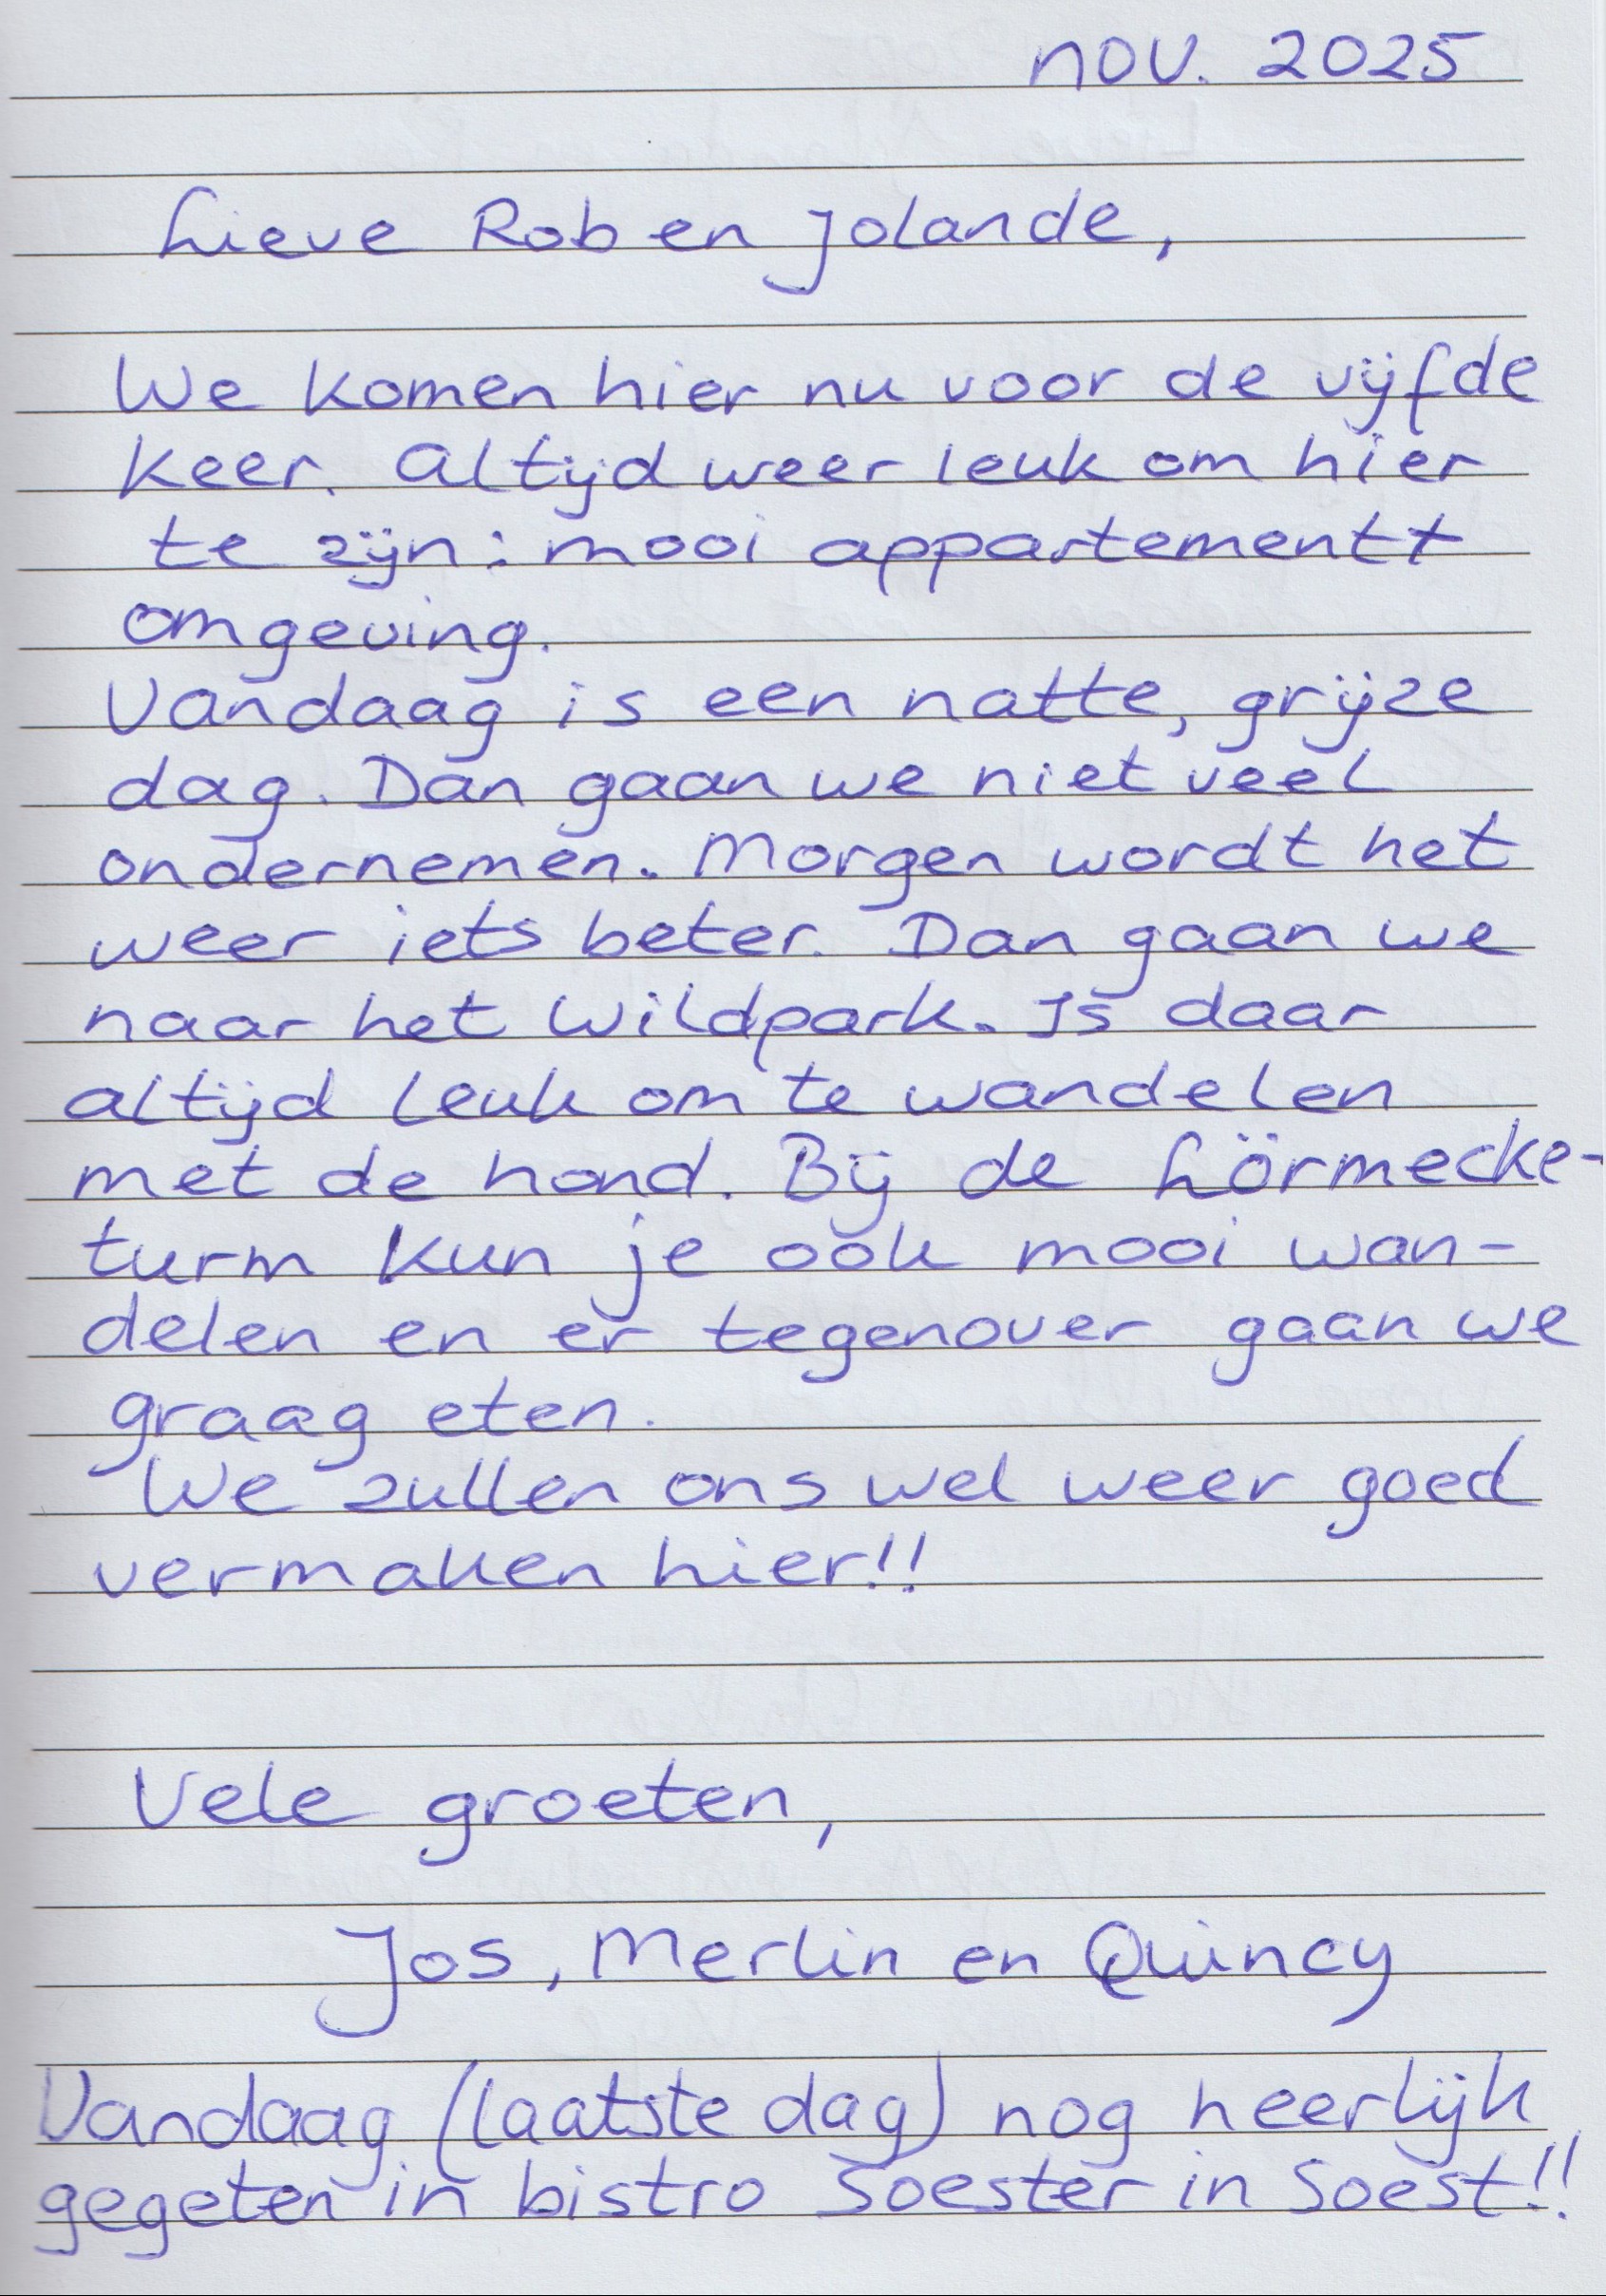 nov. 2025
Lieve Rob en Jolande,
We komen hier nu voor de vijfde
keer. Altijd weer leuk om hier
te zijn: mooi appartement +
omgeving.
Vandaag is een natte, grijze
dag. Dan gaan we niet veel
ondernemen. Morgen wordt het
weer iets beter. Dan gaan we
naar het Wildpark. Is daar
altijd leuk om te wandelen
met de hond. Bij de Lörmecke-
turm kun je ook mooi wan-
delen en er tegenover gaan we
graag eten.
We zullen ons wel weer goed
vermaken hier!!
Vele groeten,
Jos, Merlin en Quincy
Vandaag (laatste dag) nog heerlijk
gegeten in bistro Soester in Soest!!